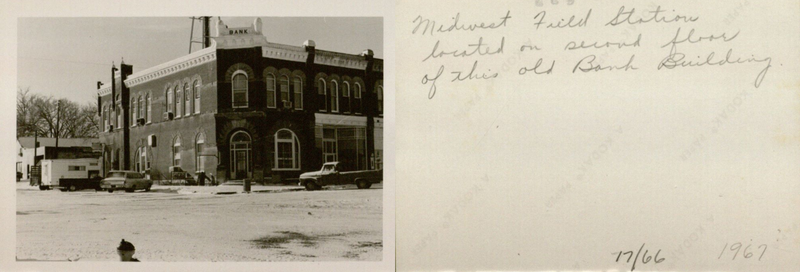 BANK
Midwest Field Station
located on second floor
of this old Bank Building.
77/66
1967